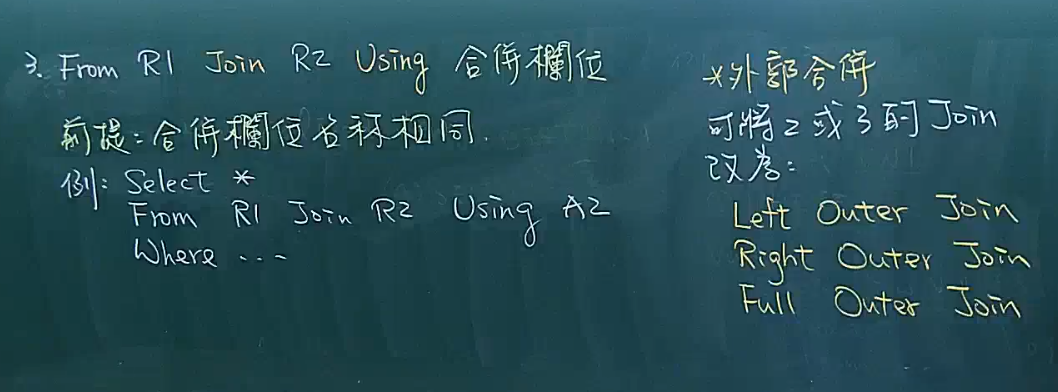 3. From R1 Join R2 Using 合併欄位
前提:合併欄位名稱相同.
例: Select *
From R1 Join R2 Using A2
Where ...
*外部合併
可將2或3的Join
改為:
Left Outer Join
Right Outer Join
Full Outer Join